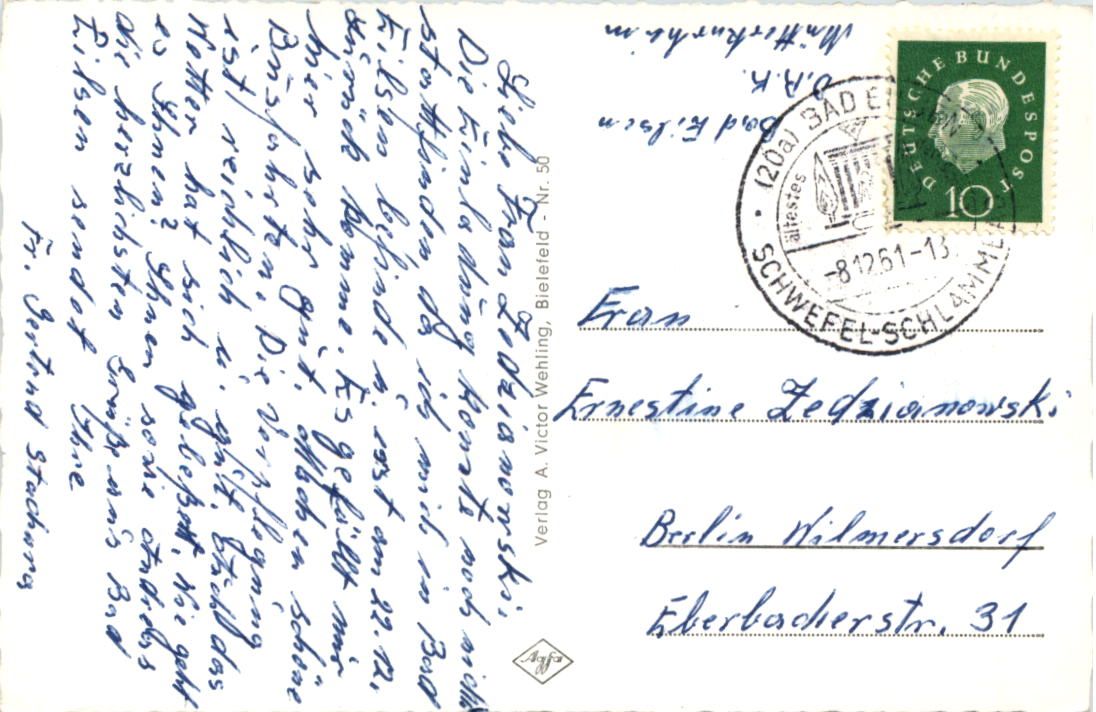 Liebe Frau Zedzianowski,
Die Einladung konnte noch nicht
stattfinden da ich mich in Bad
Eilsen befinde u. erst am 22.12.
zurück komme. Es gefällt mir
hier sehr gut. Machen schöne
Busfahrten. Die Verpflegung
ist reichlich u. gut. Auch das
Wetter hat sich gebeßert, wie geht
es Ihnen? Ihnen sowie Andreas
die herzlichsten Grüße aus Bad
Eilsen sendet Ihre
Fr. Gertrud Stachura
Verlag A. Victor Wehling, Bielefeld - Nr. 50
Agfa
Mütterkurheim
D.R.K.
Bad Eilsen
DEUTSCHE BUNDESPOST
10
(20a) BAD EILSEN
ältestes
-8.12.61-13
SCHWEFEL-SCHLAMM
Frau
Ernestine Zedzianowski
Berlin Wilmersdorf
Eberbacherstr. 31